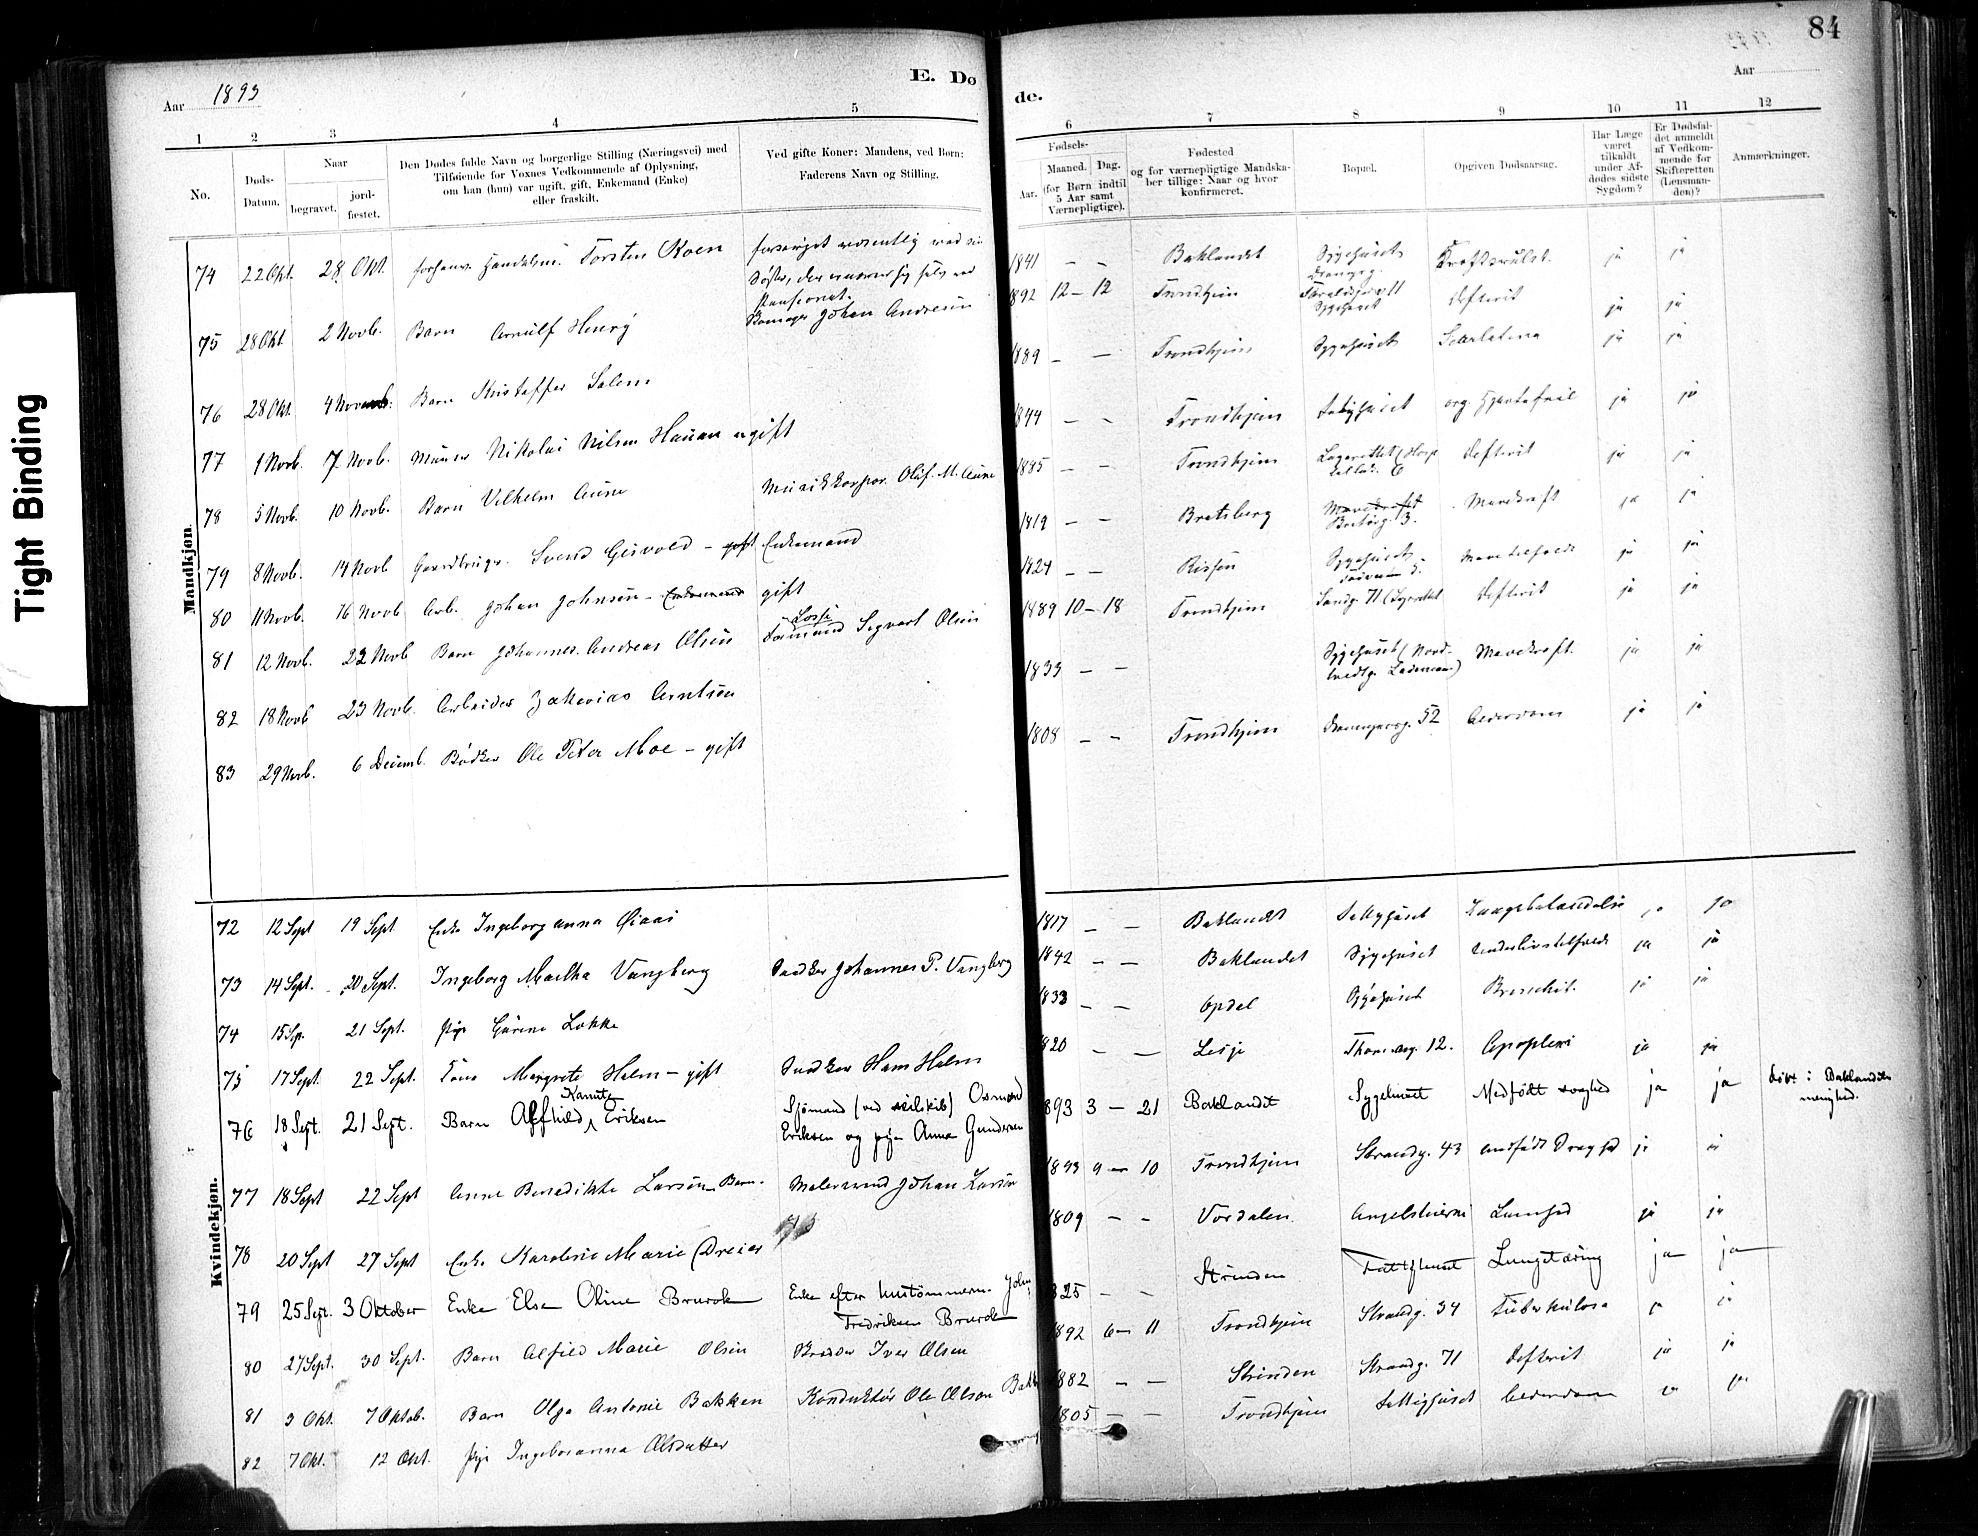 Tight Binding
84
E. Dø
de.
Aar 1893
Aar
1 2 3 4 5 6 7 8 9 10 11 12
No.
Døds-Datum.
Naar
begravet.
jord-fæstet.
Den Dødes fulde Navn og borgerlige Stilling (Næringsvei) med
Tilføiende for Voxnes Vedkommende af Oplysning,
om han (hun) var ugift, gift, Enkemand (Enke)
eller fraskilt.
Ved gifte Koner: Mandens, ved Børn:
Faderens Navn og Stilling.
Fødsels-
Aar.
Maaned. Dag.
(for Børn indtil
5 Aar samt
Værnepligtige).
Fødested
og for værnepligtige Mandska-
ber tillige: Naar og hvor
konfirmeret.
Bopæl.
Opgiven Dødsaarsag.
Har Læge
været
tilkaldt
under Af-
dødes sidste
Sygdom?
Er Dødsfal-
det anmeldt
af Vedkom-
mende for
Skifteretten
(Lensman-
den)?
Anmærkninger.
Mandkjøn.
74 22 Okt. 28 Okt. Torsten Koen 1841 — — Baklandet Sygehuset Kræftsvulst. ja ja
75 28 Okt. 2 Novb. Barn Arnulf Henry Johan Andresen 1892 12 — 12 Trondhjem Sygehuset Difterit ja ja
76 28 Okt. 4 Novemb. Barn Kristoffer Salem 1889 — — Trondhjem Sygehuset Scarlatina ja ja
77 1 Novb. 7 Novb. Murer Nikolai Nilsen Hauan ugift 1844 — — Trondhjem org. Hjertefeil ja ja
78 5 Novb. 10 Novb. Barn Vilhelm Aune Musikkorpor. Olaf M. Aune 1885 — — Trondhjem Difterit ja ja
79 8 Novb. 14 Novb. Gaardbrugr. Svend Gisvold — gift Enkemand 1819 — — Bratsberg Mavekræft ja ja
80 11 Novb. 16 Novb. Arb. Johan Johnsen — Enkemand gift 1824 — — Rissen Sygehuset ja ja
81 12 Novb. 22 Novb. Barn Johannes Andreas Olsen Formand Sigvart Olsen 1889 10 — 18 Trondhjem Sandg. 71 Difterit ja ja
82 18 Novb. 23 Novb. Arbeider Zakarias Arntsen 1833 — — Sygehuset Mavekræft. ja ja
83 29 Novb. 6 Decemb. Bødker Ole Peter Moe — gift 1808 — — Trondhjem 52 Alderdom ja ja
Kvindekjøn.
72 12 Sept 19 Sept Enke Ingeborganna 1817 — — Baklandet Lungebetændelse ja ja
73 14 Sept. 20 Sept. Ingeborg Martha Vangberg Snedker Johannes P. Vangberg 1842 — — Baklandet Sygehuset ja ja
74 15 Sp. 21 Sept. Pige Gurine Løkke 1833 — — Opdal Sygehuset Bronchit. ja ja
75 17 Sept. 22 Sept. Kone Margrete Holm — gift Snedker Hans Holm 1820 — — Lesje 12. Apoplexi ja ja
76 18 Sept. 21 Sept. Barn Alfhild Kanute Eriksen Sjömand (ved seilskib) Osmund
Eriksen og pige Anna Gundersen 1893 3 — 21 Baklandet Sygehuset Medfödt svaghed ja ja döbt i Baklandets
menighed.
77 18 Sept 22 Sept Anne Benedikte Larsen Barn. Malersvend Johan Larsen 1893 9 — 10 Trondhjem Strandg. 43 ja ja
78 20 Sept 27 Sept Enke Karoline Marie Dreier 1809 — — Værdalen ja ja
79 25 Sept. 3 Oktober Enke Else Oline Brurok Enke efter hustömmerm. John
Fredriksen Brurok 1825 — — Strinden Fattighuset Lungetæring ja ja
80 27 Sept. 30 Sept. Barn Alfild Marie Olsen Iver Olsen 1892 6 — 11 Trondhjem Strandg. 34 Tuberkulose ja ja
81 3 Okt. 7 Oktob. Barn Olga Antonie Bakken Konduktør Ole Olson Bakk 1882 — — Strinden Strandg. 71 Difterit ja ja
82 7 Okt. 12 Okt. Pige Ingeboranna Olsdatter 1805 — — Trondhjem Fattighuset Alderdom ja ja